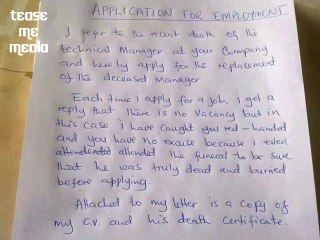 tease
me
media
APPLICATION FOR EMPLOYMENT
I refer to the recent death of the
technical Manager at your Company
and hereby apply for the replacement
of the deceased manager
Each time i apply for a job, I get a
reply that there is no vacancy but in
this case i have caught you red-handed
and you have no excuse because i even
attendended attended the funeral to be sure
that he was truly dead and buried
before applying.
Attached to my letter is a copy of
my C.V. and his death certificate.